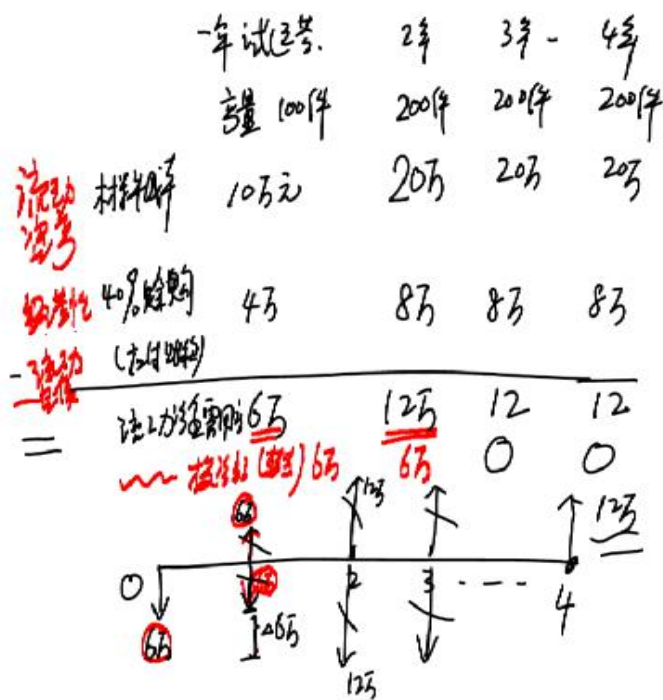 一年试运营 2年 3年 - 4年
产量 100件 200件 200件 200件
流动资产 材料成本 10万元 20万 20万 20万
经营性 40%赊购 4万 8万 8万 8万
- 流动负债 (应付账款)
= 流动资金需用 6万 12万 12 12
6万 6万 0 0
6万 12万 12万
0 2 3 ---- 4
6万 Δ6万
12万